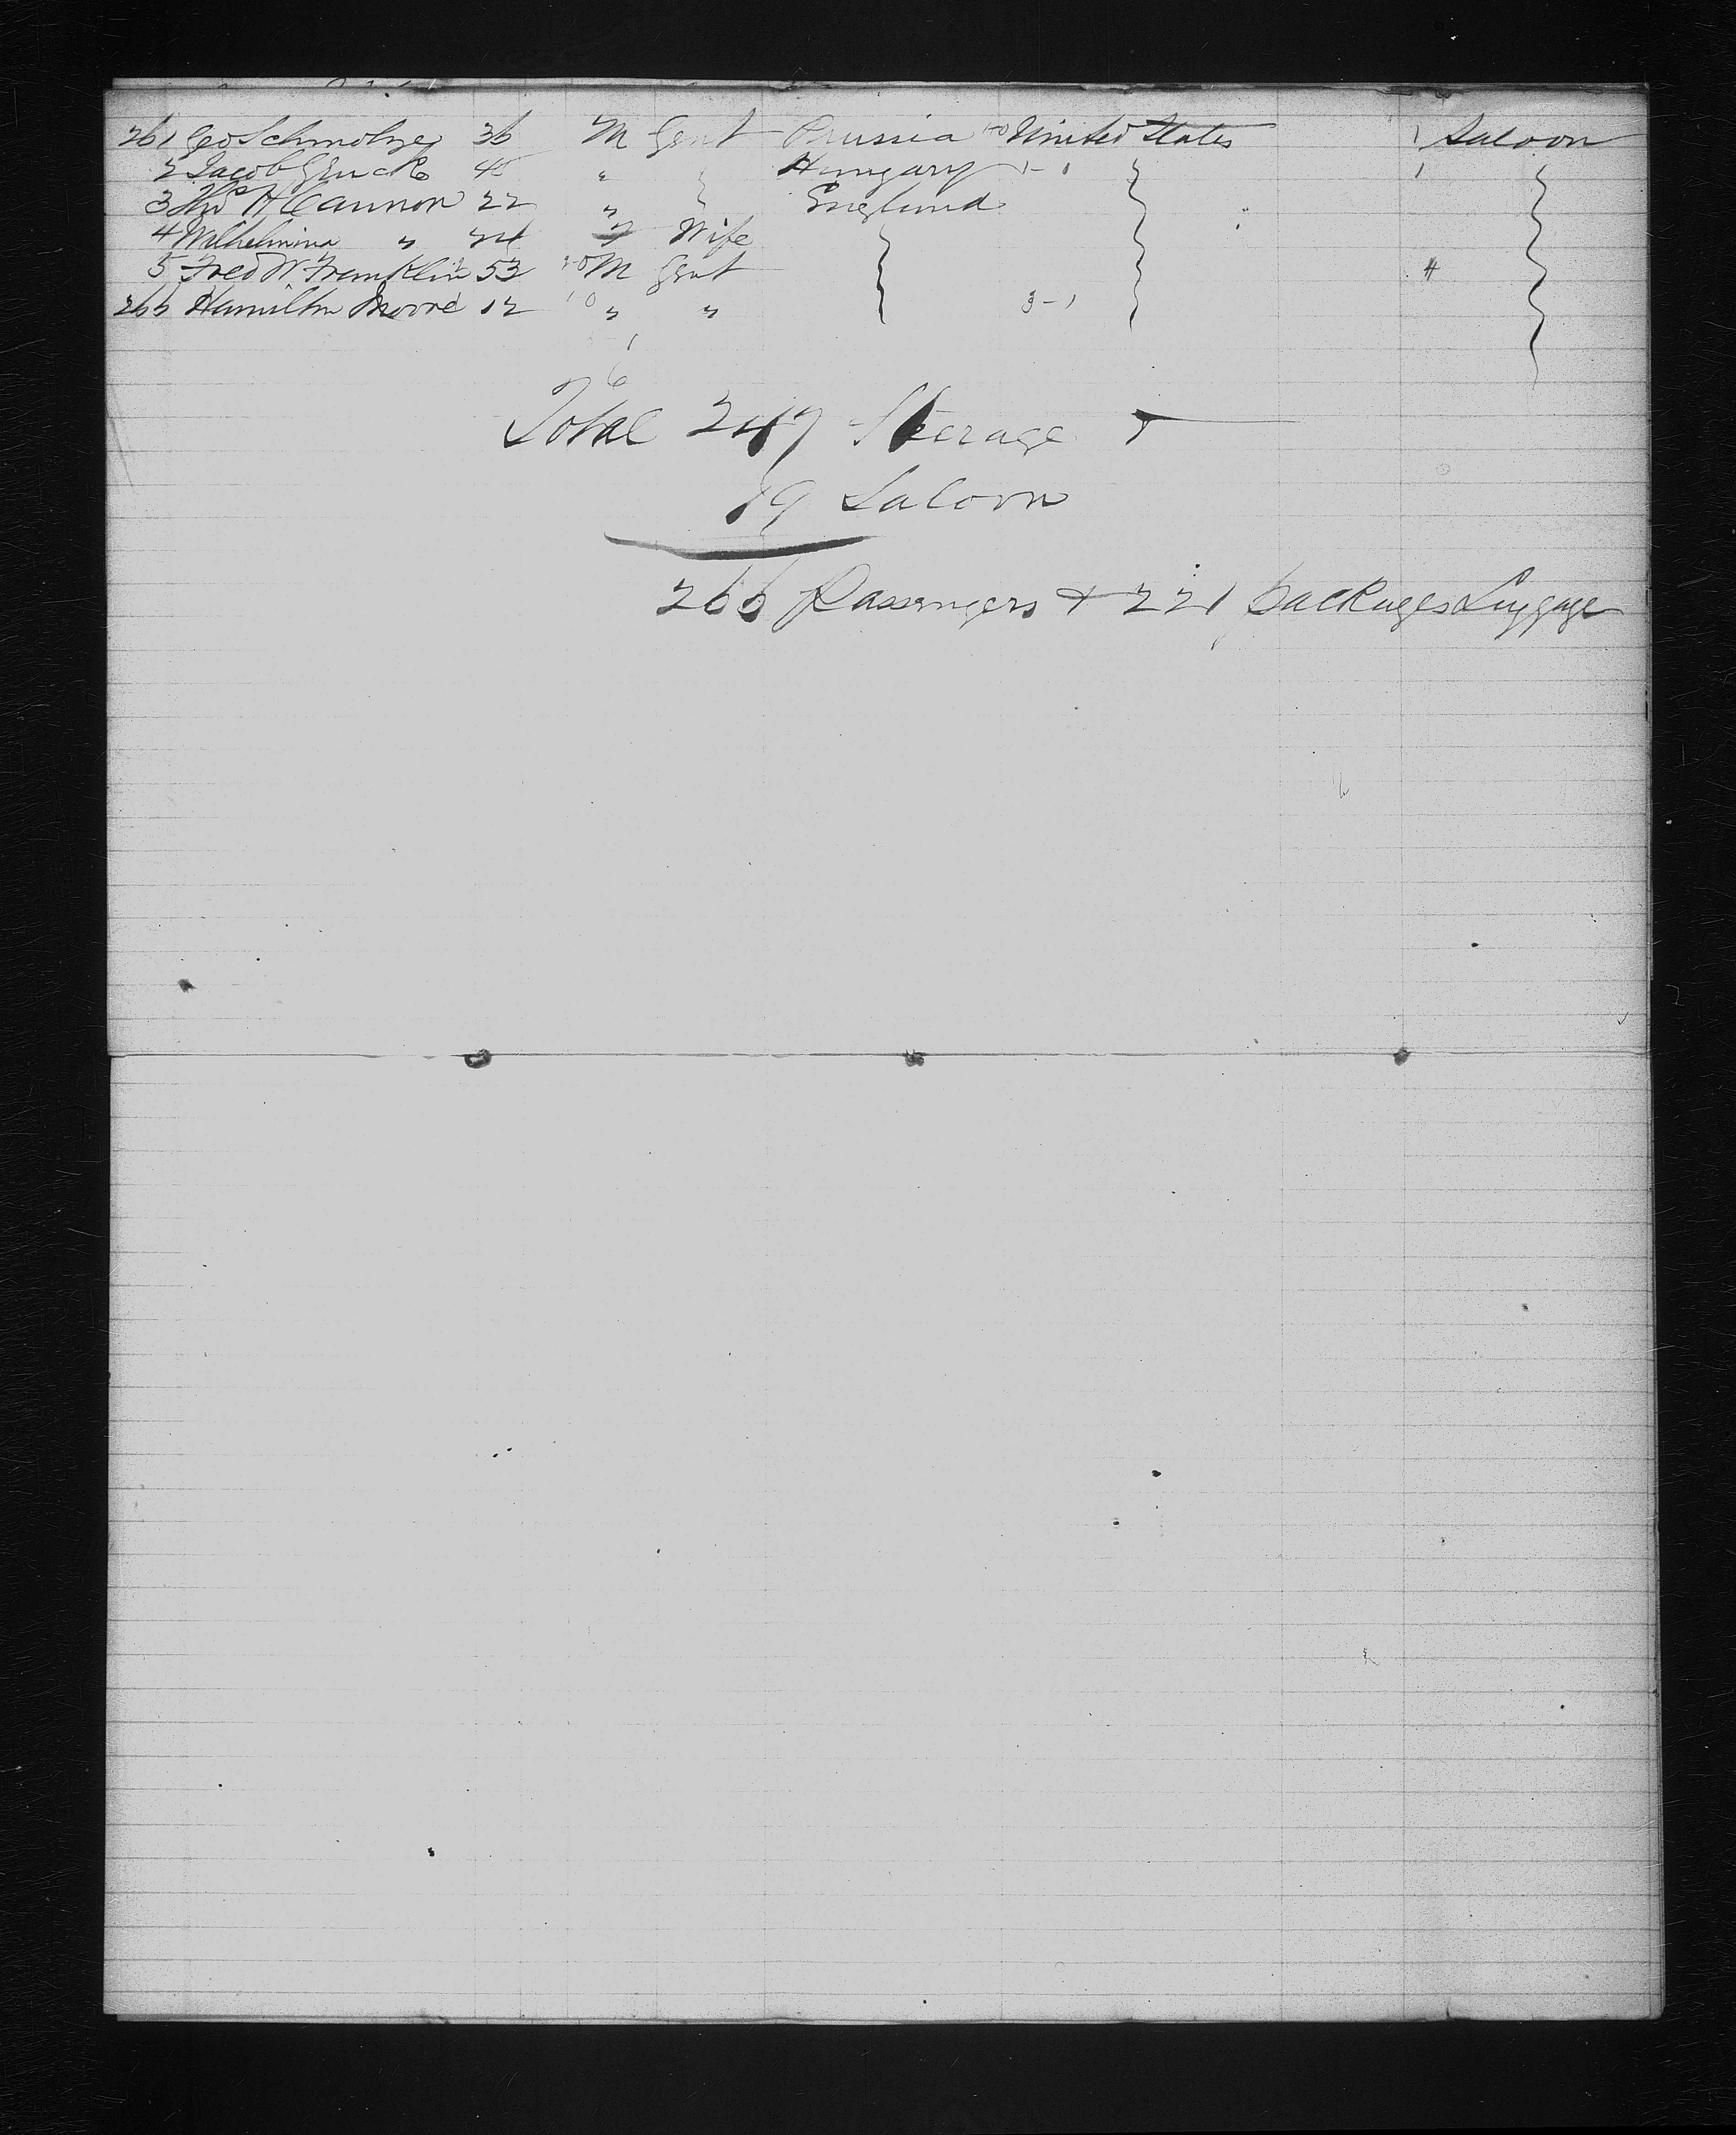 261 Geo Schmolzey 36 M Gent Prussia 1-0 United States 1 Saloon
2 Jacob Gluck 45 " Hungary 1-1 1
3 Thos H Cannon 22 " England
4 Wilhelmina " 24 Wife
5 Fred W Franklin 53 M Gent 4
266 Hamilton Moore 12 " " 3-1
6
Total 247 Steerage
19 Saloon
266 Passengers + 221 packages Luggage